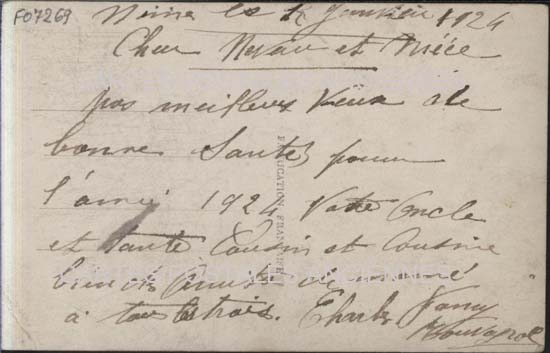 FO7269
Nimes les Janvier 1924
Cher Neveu et Nièce
nos meilleurs Vœux de
bonne Santé pour
l'année 1924 Votre Oncle
et tante Cousin et Cousine
bien de
à tous les trois. Charles Fany